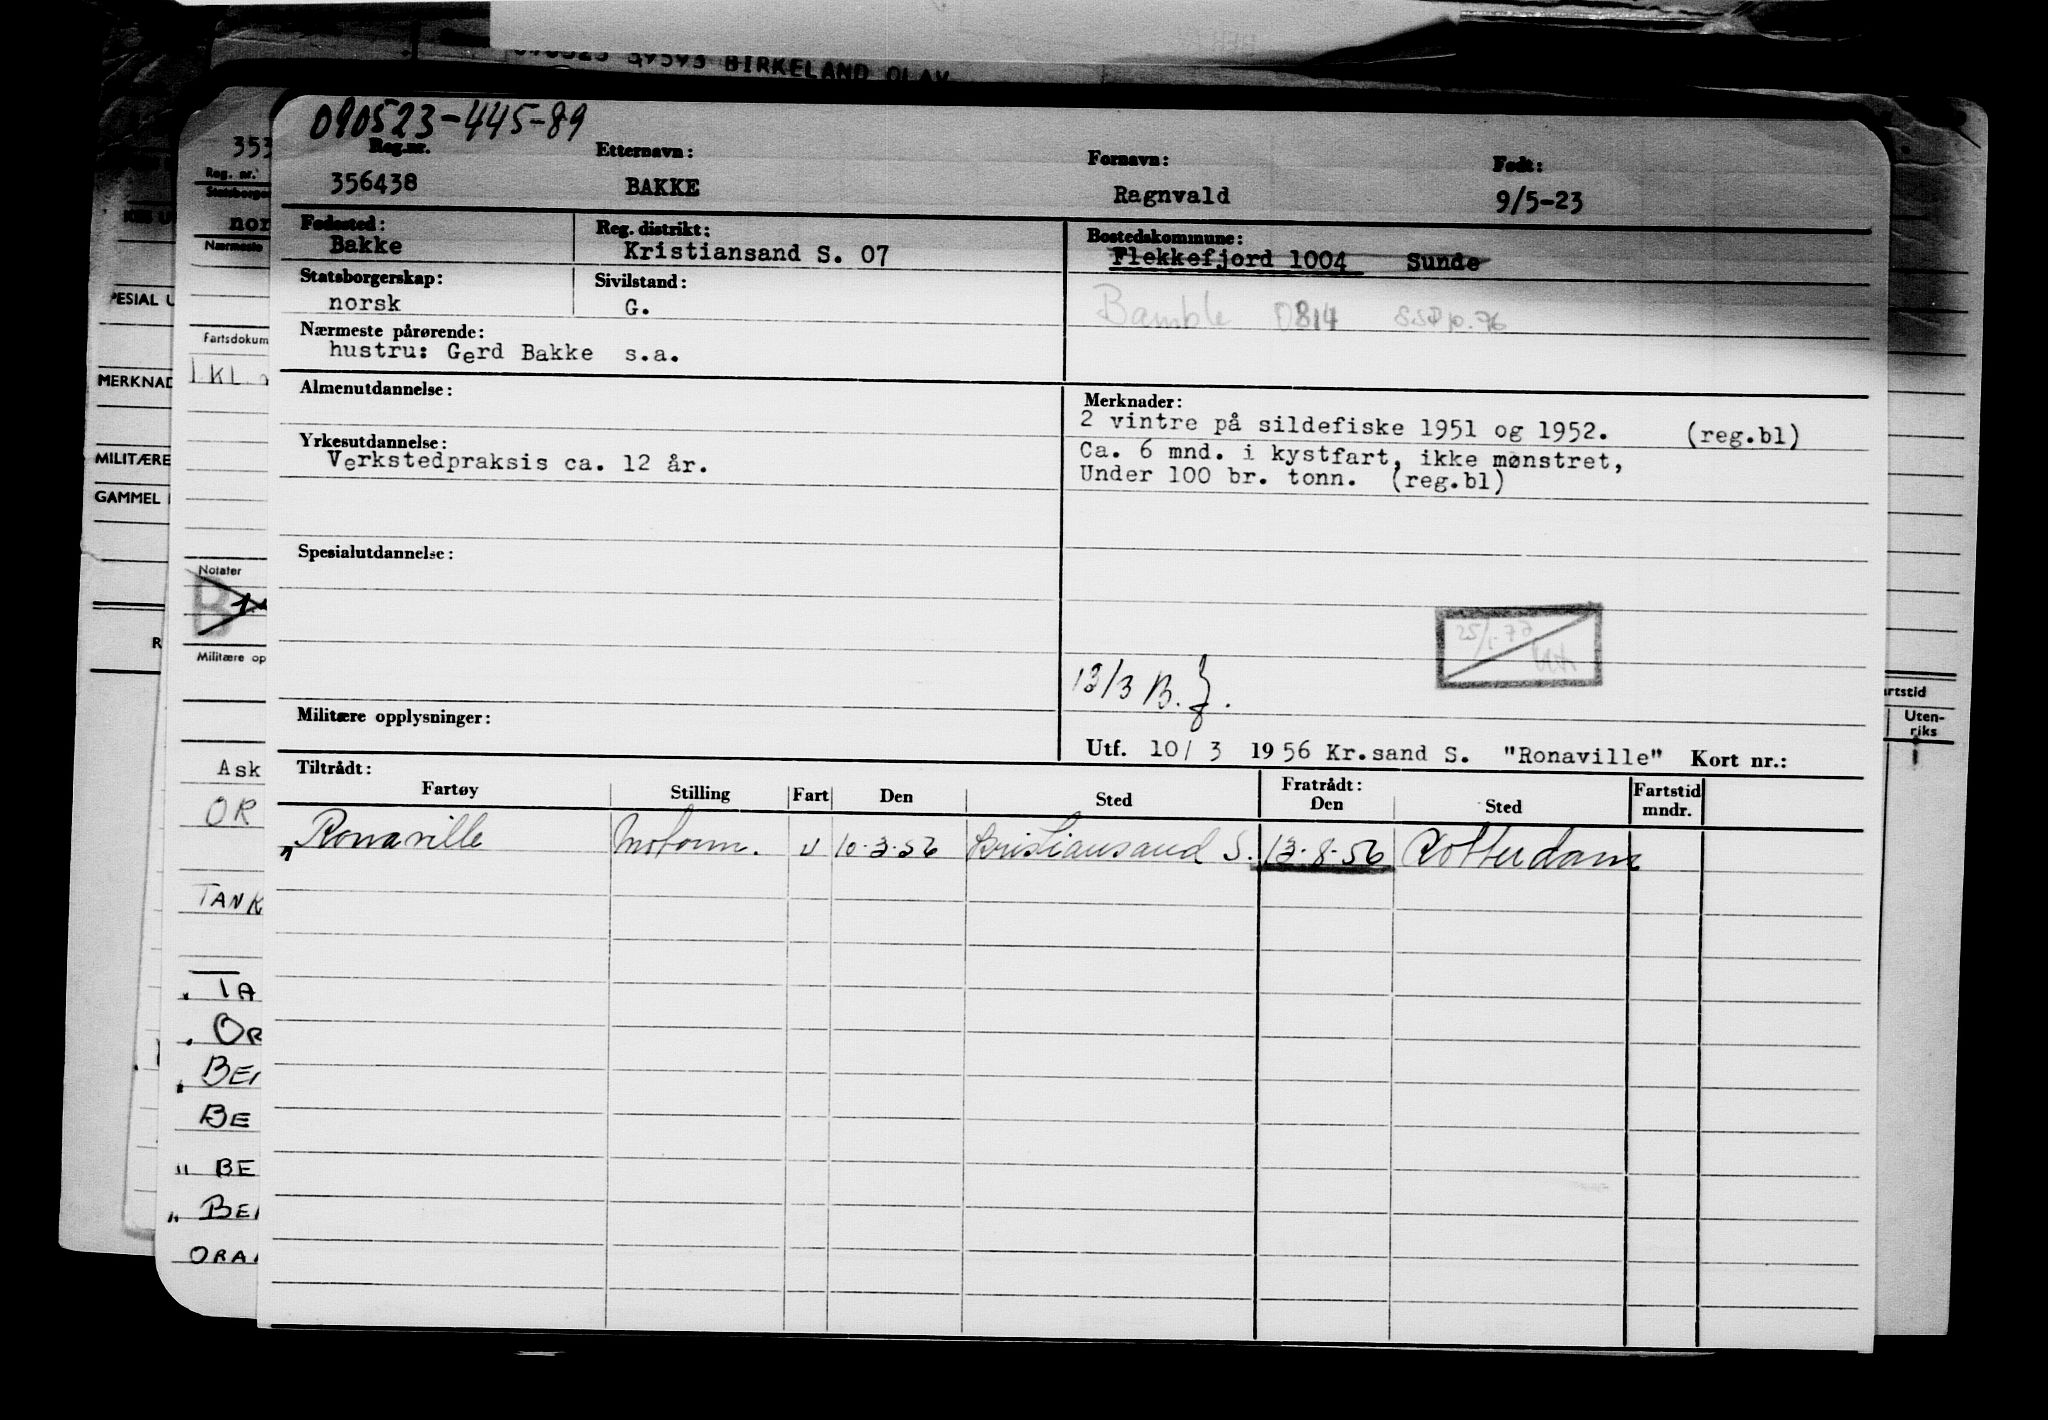 090523 39593 BIRKELAND OLAV
090523-445-89
Reg.nr. Etternavn: Fornavn: Født:
356438 BAKKE Ragnvald 9/5-23
Fødested: Reg. distrikt: Bostedskommune:
Bakke Kristiansand S. 07 Flekkefjord 1004 Sunde
Statsborgerskap: Sivilstand:
norsk G. Bamble 0814
Nærmeste pårørende:
hustru: Gerd Bakke s.a.
Almenutdannelse: Merknader:
2 vintre på sildefiske 1951 og 1952. (reg.bl)
Yrkesutdannelse: Ca. 6 mnd. i kystfart, ikke mønstret,
Verkstedpraksis ca. 12 år. Under 100 br. tonn. (reg.bl)
Spesialutdannelse:
13/3 B.
Militære opplysninger:
Utf. 10/3 1956 Kr.sand S. "Ronaville" Kort nr.:
Tiltrådt: Fratrådt: Fartstid
Fartøy Stilling Fart Den Sted Den Sted mndr.
" Ronaville Motorm. U 10-3-56 Kristiansand S. 13-8-56 Rotterdam
353
Reg. nr.
Statsborger
nor
Nærmeste
Fartsdokum
KL.
Notater
B
Militære op
Ask
OR
TANK
TA
OR
BE
BE
" BE
" BE
ORA
PESIAL U
MERKNAD
MILITÆRE
GAMMEL
R
artstid
Uten-
riks